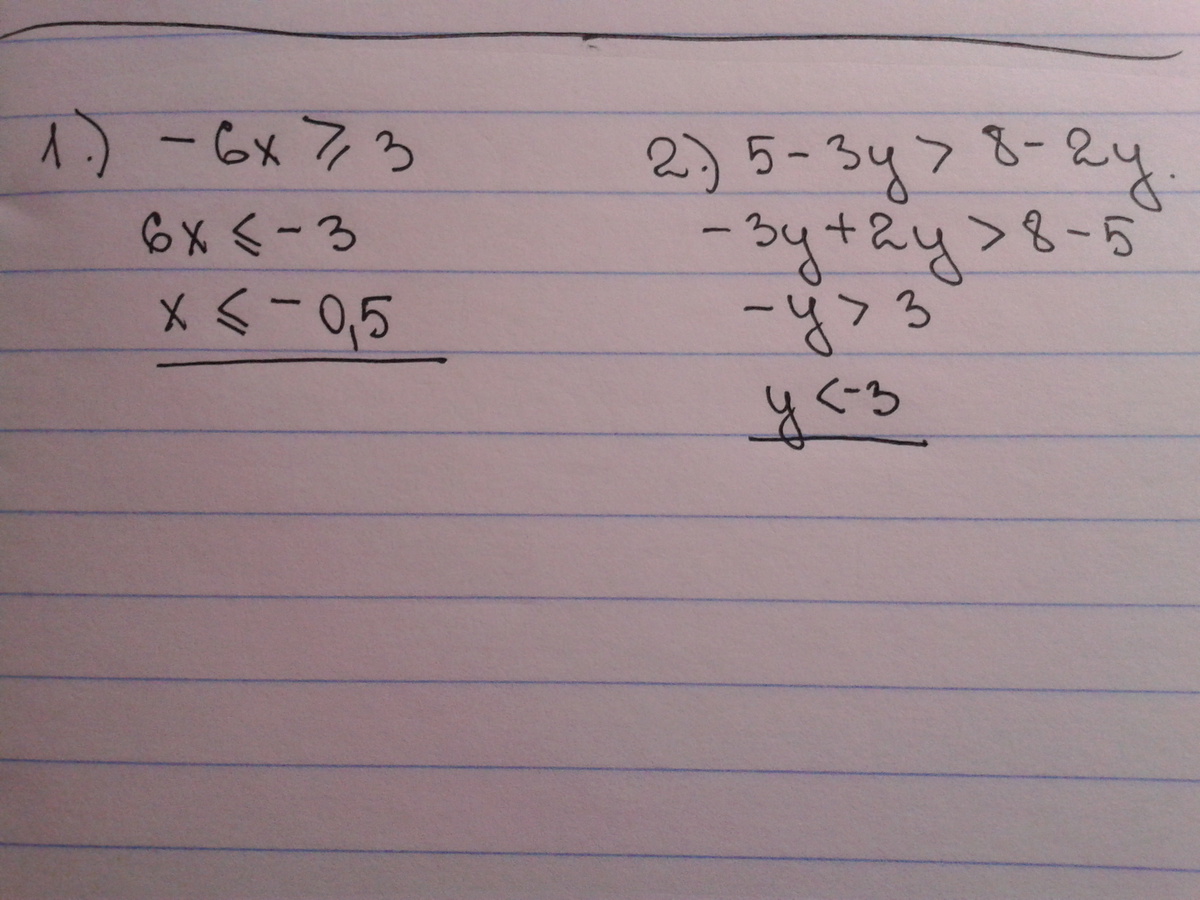 1.) -6x ⩾ 3
6x ⩽ -3
x ⩽ -0,5
2.) 5-3y > 8-2y.
-3y+2y > 8-5
-y > 3
y < -3